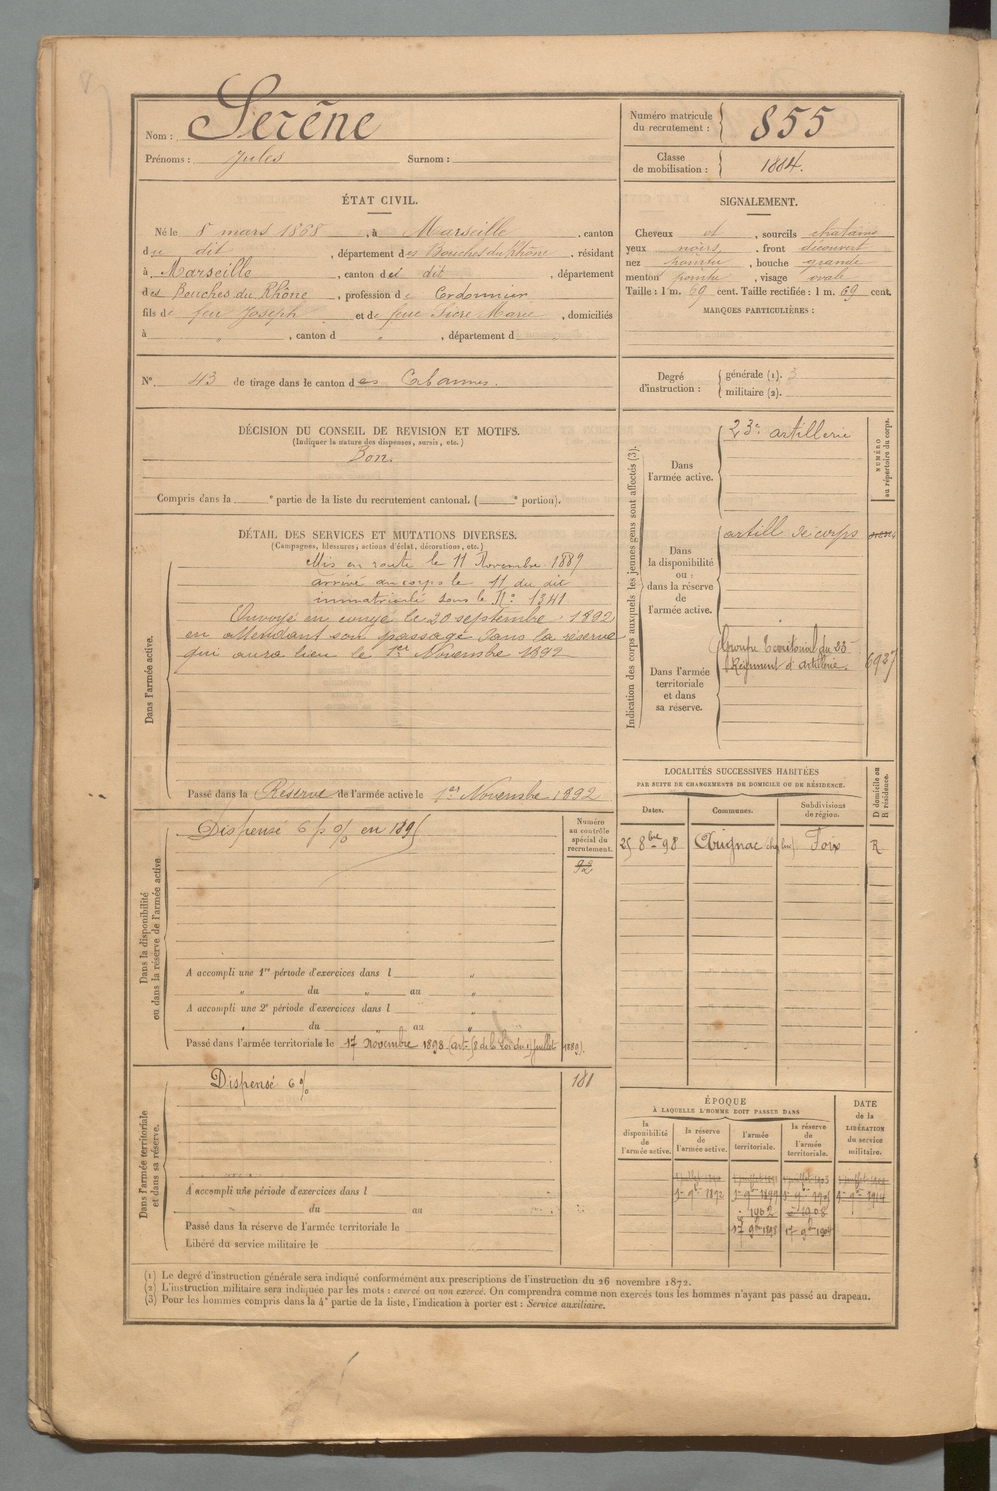 Nom : Serène
Prénoms : Jules Surnom :
Numéro matricule du recrutement : 855
Classe de mobilisation : 1884.
ÉTAT CIVIL.
Né le 8 mars 1868, à Marseille, canton
du dit, département des Bouches du Rhône, résidant
à Marseille, canton du dit, département
des Bouches du Rhône, profession de Cordonnier
fils de feu Joseph et de feue Sicre Marie, domiciliés
à , canton d , département d
SIGNALEMENT.
Cheveux et , sourcils chatains
yeux noirs , front découvert
nez pointu , bouche grande
menton pointu , visage ovale
Taille : 1 m. 69 cent. Taille rectifiée : 1 m. 69 cent.
MARQUES PARTICULIÈRES :
N° 43 de tirage dans le canton des Cabannes.
Degré d'instruction : générale (1). 3
militaire (2).
DÉCISION DU CONSEIL DE REVISION ET MOTIFS.
(Indiquer la nature des dispenses, sursis, etc.)
Bon.
Compris dans la e partie de la liste du recrutement cantonal. ( e portion).
DÉTAIL DES SERVICES ET MUTATIONS DIVERSES.
(Campagnes, blessures, actions d'éclat, décorations, etc.)
Dans l'armée active.
Mis en route le 11 Novembre 1889
arrivé au corps le 11 du dit
immatriculé sous le N° 1341
Envoyé en congé le 20 septembre 1892
en attendant son passage dans la réserve
qui aura lieu le 1er Novembre 1892
Passé dans la Réserve de l'armée active le 1er Novembre 1892
Indication des corps auxquels les jeunes gens sont affectés (3).
NUMÉRO au répertoire du corps.
Dans l'armée active. 23e artillerie
Dans la disponibilité ou dans la réserve de l'armée active. artill de corps
Dans l'armée territoriale et dans sa réserve. Groupe Territorial du 23e
Régiment d'artillerie. 6927
LOCALITÉS SUCCESSIVES HABITÉES
PAR SUITE DE CHANGEMENTS DE DOMICILE OU DE RÉSIDENCE.
D domicile ou R résidence.
Dates. Communes. Subdivisions de région.
25 8bre 98 Aurignac Foix R
Dans la disponibilité ou dans la réserve de l'armée active.
Numéro au contrôle spécial du recrutement.
92
Dispensé 6 p % en 1895
A accompli une 1re période d'exercices dans l
du au
A accompli une 2e période d'exercices dans l
du au
Passé dans l'armée territoriale le 17 Novembre 1898 (art 58 de la loi du 15 juillet 1889).
Dans l'armée territoriale et dans sa réserve.
Dispensé 6 % 181
A accompli une période d'exercices dans l
du au
Passé dans la réserve de l'armée territoriale le
Libéré du service militaire le
ÉPOQUE
À LAQUELLE L'HOMME DOIT PASSER DANS
DATE de la LIBÉRATION du service militaire.
la disponibilité de l'armée active. la réserve de l'armée active. l'armée territoriale. la réserve de l'armée territoriale.
1er 9bre 1892
1902 1908
17 9bre 1898 17 9bre 1904
(1) Le degré d'instruction générale sera indiqué conformément aux prescriptions de l'instruction du 26 novembre 1872.
(2) L'instruction militaire sera indiquée par les mots : exercé ou non exercé. On comprendra comme non exercés tous les hommes n'ayant pas passé au drapeau.
(3) Pour les hommes compris dans la 4e partie de la liste, l'indication à porter est : Service auxiliaire.